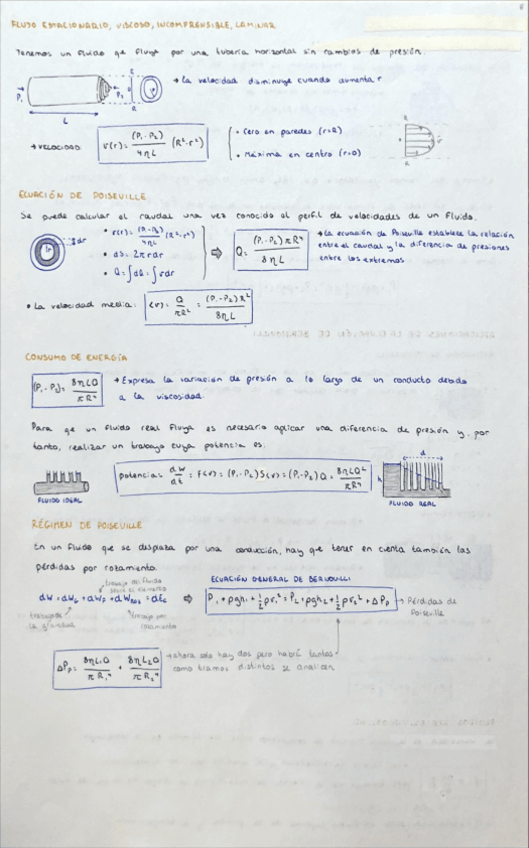 FLUJO ESTACIONARIO, VISCOSO, INCOMPRENSIBLE, LAMINAR
Tenemos un fluido qe fluye por una tubería horizontal sin cambios de presión.
P₁ P₂ L R
→ La velocidad disminuye cuando aumenta r
→ VELOCIDAD: v(r) = (P₁-P₂)/4ηL (R²-r²)
• Cero en paredes (r=R)
• Máxima en centro (r=0)
ECUACIÓN DE POISEVILLE
Se puede calcular el caudal una vez conocido el perfil de velocidades de un fluido.
dr
• v(r) = (P₁-P₂)/4ηL (R²-r²)
• dS = 2πrdr
• Q = ∫dQ = ∫vdr
⇒ Q = (P₁-P₂)πR⁴/8ηL
→ La ecuación de Poiseville establece la relación
entre el caudal y la diferencia de presiones
entre los extremos
• La velocidad media: ⟨v⟩ = Q/πR² = (P₁-P₂)R²/8ηL
CONSUMO DE ENERGÍA
(P₁-P₂) = 8ηLQ/πR⁴
→ Expresa la variación de presión a lo largo de un conducto debido
a la viscosidad.
Para qe un fluido real fluya es necesario aplicar una diferencia de presión y, por
tanto, realizar un trabajo cuya potencia es:
FLUIDO IDEAL
potencia = dW/dt = F⟨v⟩ = (P₁-P₂)S⟨v⟩ = (P₁-P₂)Q = 8ηLQ²/πR⁴
h d
FLUIDO REAL
RÉGIMEN DE POISEVILLE
En un fluido que se desplaza por una conducción, hay que tener en cuenta también las
pérdidas por rozamiento.
trabajo del fluido
sobre el elemento
dW = dWg + dWF + dWROZ = dEc
trabajo de
la gravedad
trabajo por
rozamiento
⇒
ECUACIÓN GENERAL DE BERNOULLI
P₁ + ρgh₁ + ½ρv₁² = P₂ + ρgh₂ + ½ρv₂² + ΔPp
→ Pérdidas de
Poiseville
ΔPp = 8ηL₁Q/πR₁⁴ + 8ηL₂Q/πR₂⁴
→ ahora solo hay dos pero habrá tantos
como tramos distintos se analicen